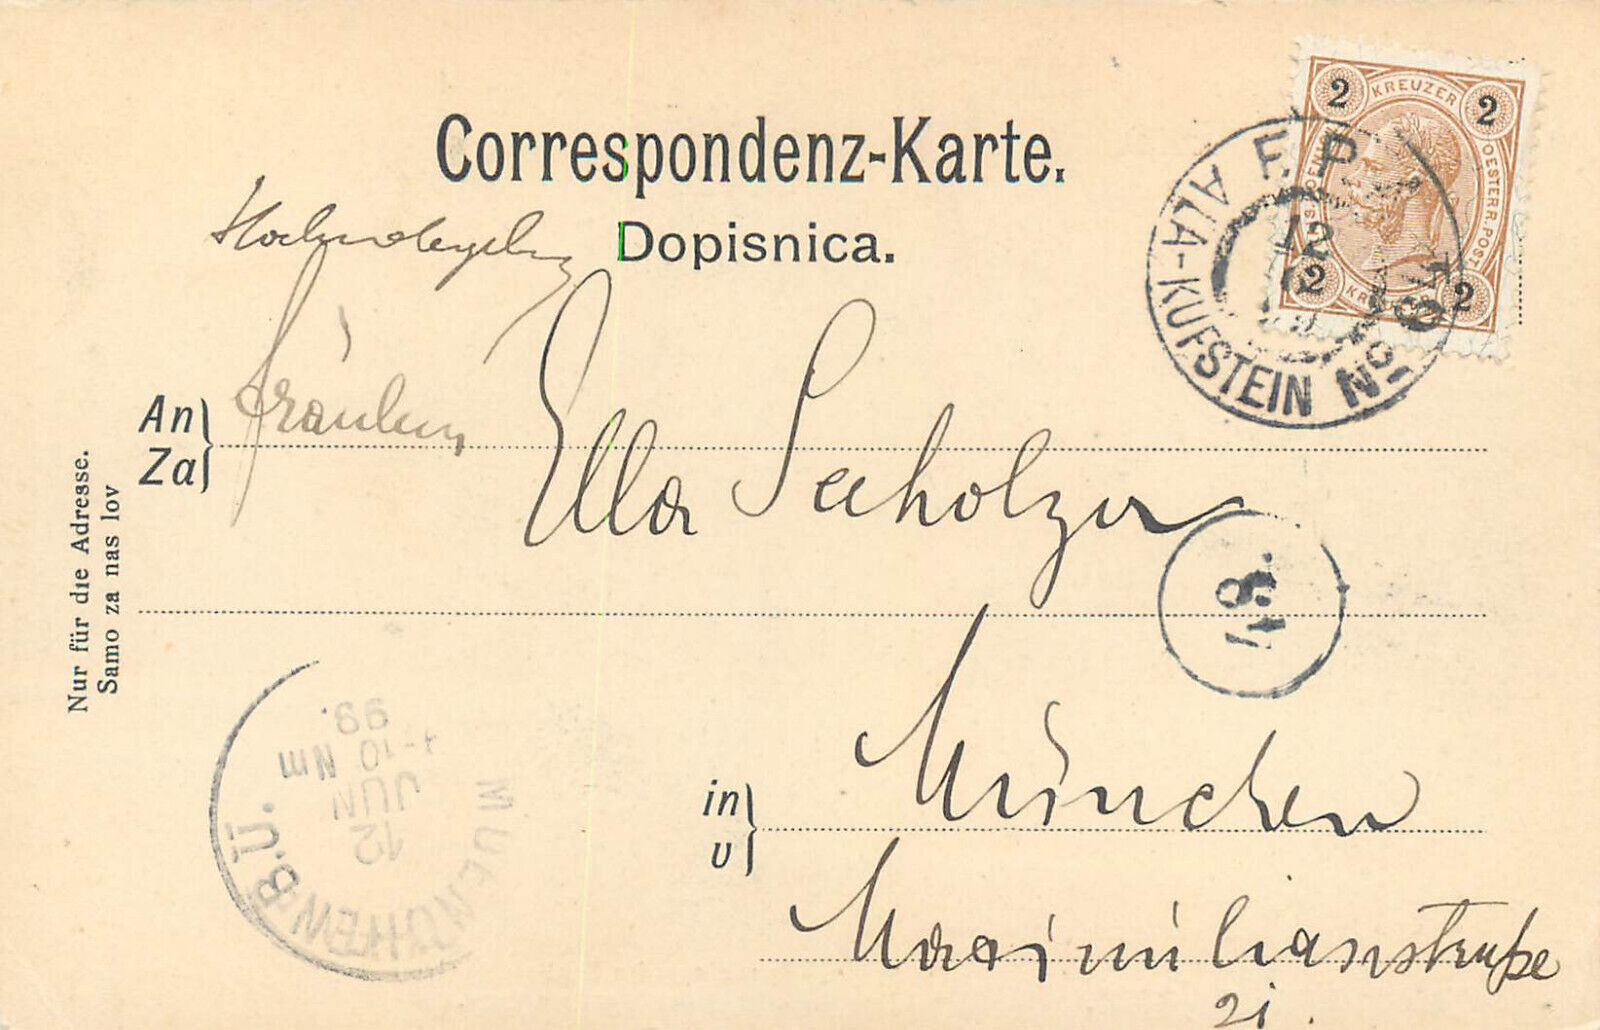 Correspondenz-Karte.
Dopisnica.
2 KREUZER 2
OESTERR. POST
2 2
F. P. 10
12
ALA-KUFSTEIN No.
An
Za
Fräulein Ella Seeholzer
8.
Nur für die Adresse.
Samo za nas lov
MUENCHEN B.Ü.
12
JUN
-10 Nm
99.
in
v
München
Maximilianstraße
21.